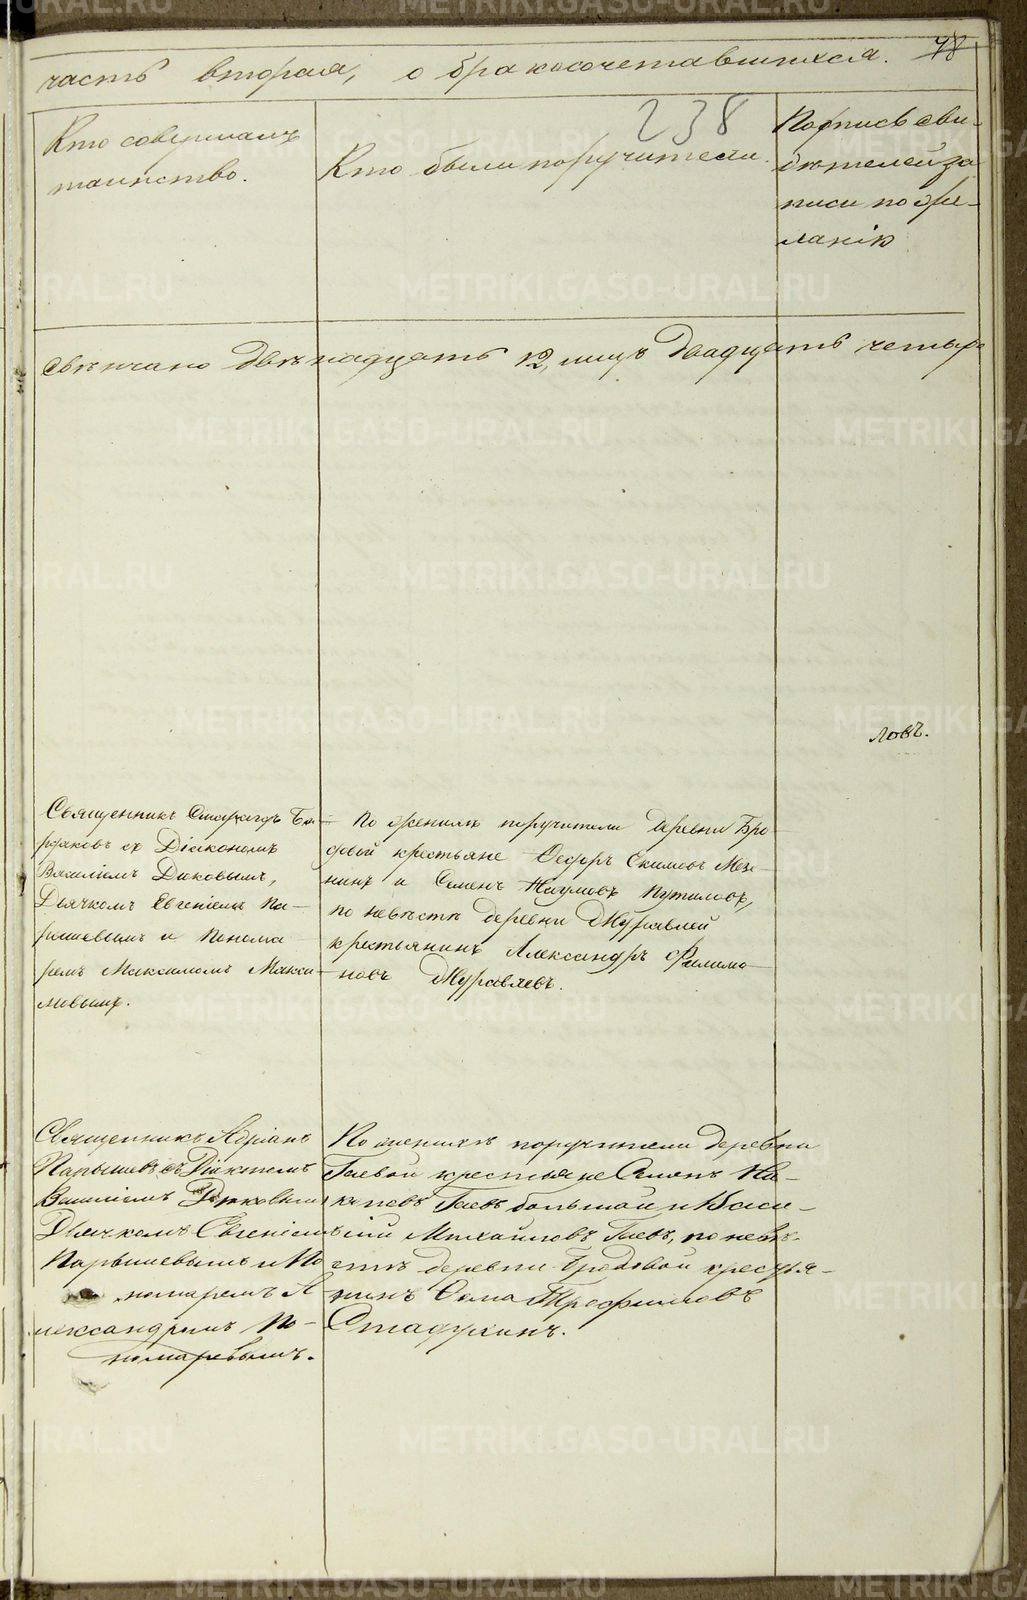 часть вторая, о бракосочетавшихся. 78
238
Кто совершалъ
таинство.
Кто были поручители.
Подпись сви-
дѣтелей за
писи по же-
ланію
свѣнчано двѣнадцать 12, лицъ двадцать четыре
ловъ.
Священникъ
рдяковъ съ Діакономъ
Василіемъ Диковымъ,
Дьячкомъ Евгеніемъ Па-
рышевымъ и Понома
ремъ Максимомъ Макси
мовымъ.
По женихѣ поручители деревни Бро
довой крестьяне Ѳедоръ Екимовъ
и Семенъ Наумовъ Путиловъ,
по невѣстѣ деревни Журавлей
крестьянинъ Александръ Филимо
новъ Журавлевъ.
Священникъ Адріанъ
Парышевъ съ Діакономъ
Василіемъ Диковымъ
Дьячкомъ Евгеніем
Парышевымъ и По
номаремъ А
лександромъ По-
номаревымъ.
По женихѣ поручители деревни
Гаевой крестьяне Семенъ
Гаевъ большой и Васи-
лій Михайловъ Гаевъ, по невѣ-
стѣ деревни Бродовой крестья-
нинъ Ѳома Трофимовъ
Стадухинъ.
METRIKI.GASO-URAL.RU